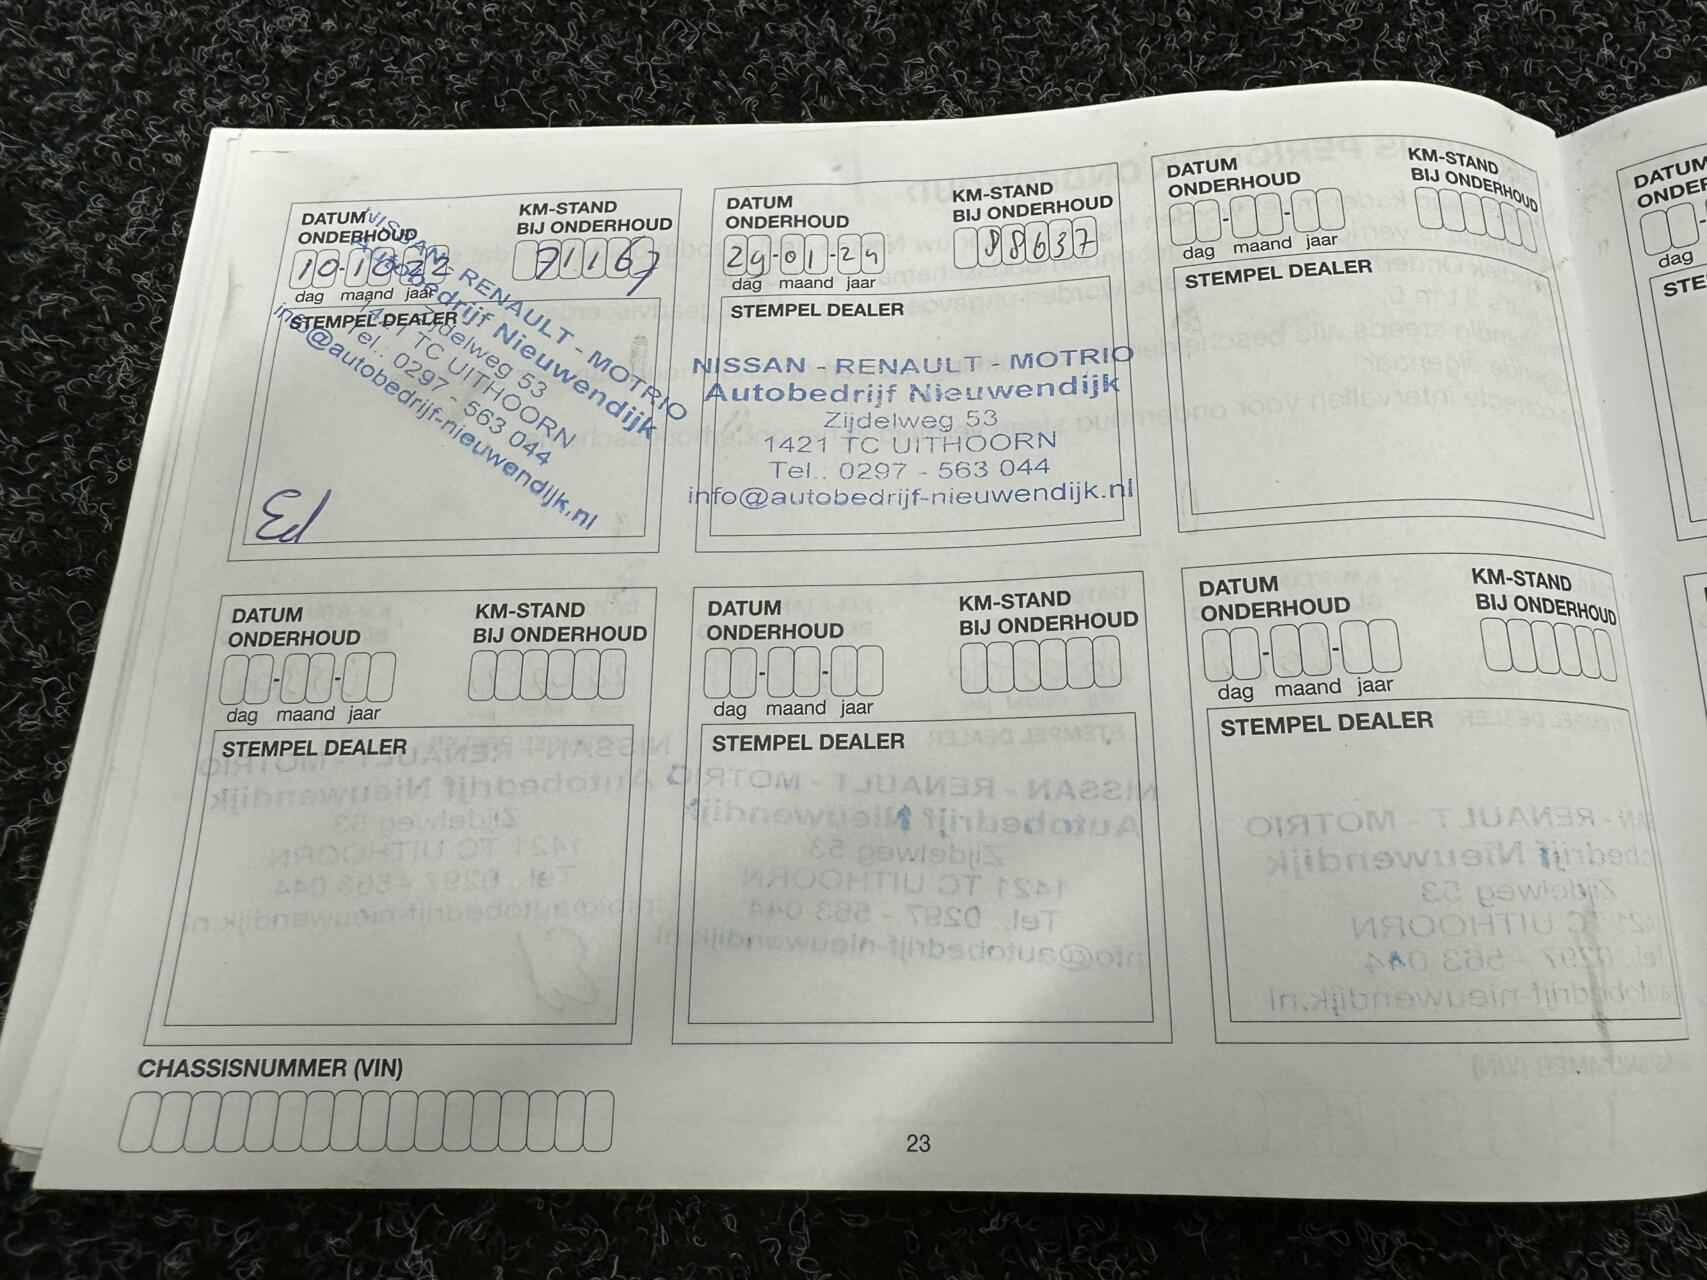 DATUM
ONDERHOUD
KM-STAND
BIJ ONDERHOUD
10-10-22
71167
dag maand jaar
STEMPEL DEALER
NISSAN - RENAULT - MOTRIO
Autobedrijf Nieuwendijk
Zijdelweg 53
1421 TC UITHOORN
Tel.: 0297 - 563 044
info@autobedrijf-nieuwendijk.nl
DATUM
ONDERHOUD
KM-STAND
BIJ ONDERHOUD
29-01-24
88637
dag maand jaar
STEMPEL DEALER
NISSAN - RENAULT - MOTRIO
Autobedrijf Nieuwendijk
Zijdelweg 53
1421 TC UITHOORN
Tel.: 0297 - 563 044
info@autobedrijf-nieuwendijk.nl
DATUM
ONDERHOUD
KM-STAND
BIJ ONDERHOUD
dag maand jaar
STEMPEL DEALER
DATUM
ONDERHOUD
KM-STAND
BIJ ONDERHOUD
dag maand jaar
STEMPEL DEALER
DATUM
ONDERHOUD
KM-STAND
BIJ ONDERHOUD
dag maand jaar
STEMPEL DEALER
DATUM
ONDERHOUD
KM-STAND
BIJ ONDERHOUD
dag maand jaar
STEMPEL DEALER
CHASSISNUMMER (VIN)
23
DATUM
dag